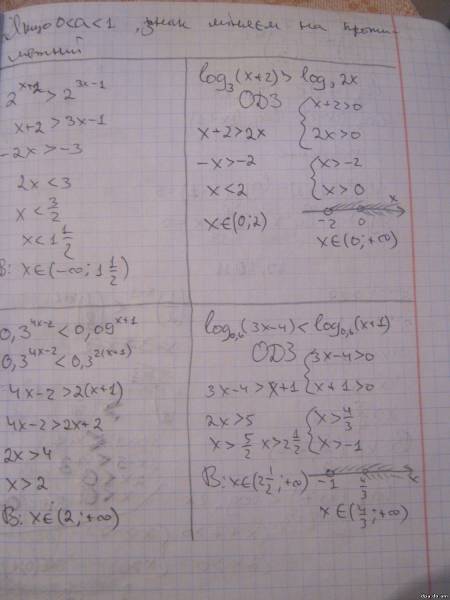 Якщо 0<a<1, знак міняєм на проти-
лежний
2^{x+2} > 2^{3x-1}
x+2 > 3x-1
-2x > -3
2x < 3
x < \frac{3}{2}
x < 1\frac{1}{2}
В: x∈(-∞; 1\frac{1}{2})
log_3(x+2) > log_3 2x
ОДЗ { x+2>0
2x>0
x+2 > 2x
-x > -2
x < 2
x∈(0;2)
{ x > -2
x > 0
x
-2 0
x∈(0;+∞)
0,3^{4x-2} < 0,09^{x+1}
0,3^{4x-2} < 0,3^{2(x+1)}
4x-2 > 2(x+1)
4x-2 > 2x+2
2x > 4
x > 2
В: x∈(2;+∞)
log_{0,6}(3x-4) < log_{0,6}(x+1)
ОДЗ { 3x-4>0
x+1>0
3x-4 > x+1
2x > 5
x > \frac{5}{2} x > 2\frac{1}{2}
{ x > \frac{4}{3}
x > -1
В: x∈(2\frac{1}{2};+∞)
-1 \frac{4}{3} x
x∈(\frac{4}{3};+∞)